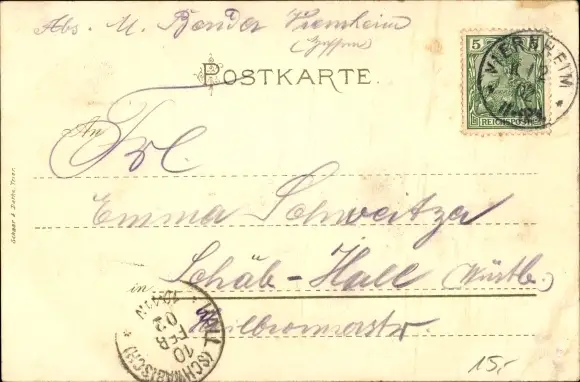 Abs. M. Bender Viernheim
(Hessen)
POSTKARTE.
5
REICHSPOST
* VIERNHEIM *
An
Frl.
Emma Schweitzer
in Schäb-Hall (Württb.)
Heilbronnerstr.
HALL (SCHWÄBISCH)
10 FEB 02
Schaar & Dathe, Trier.
15,-